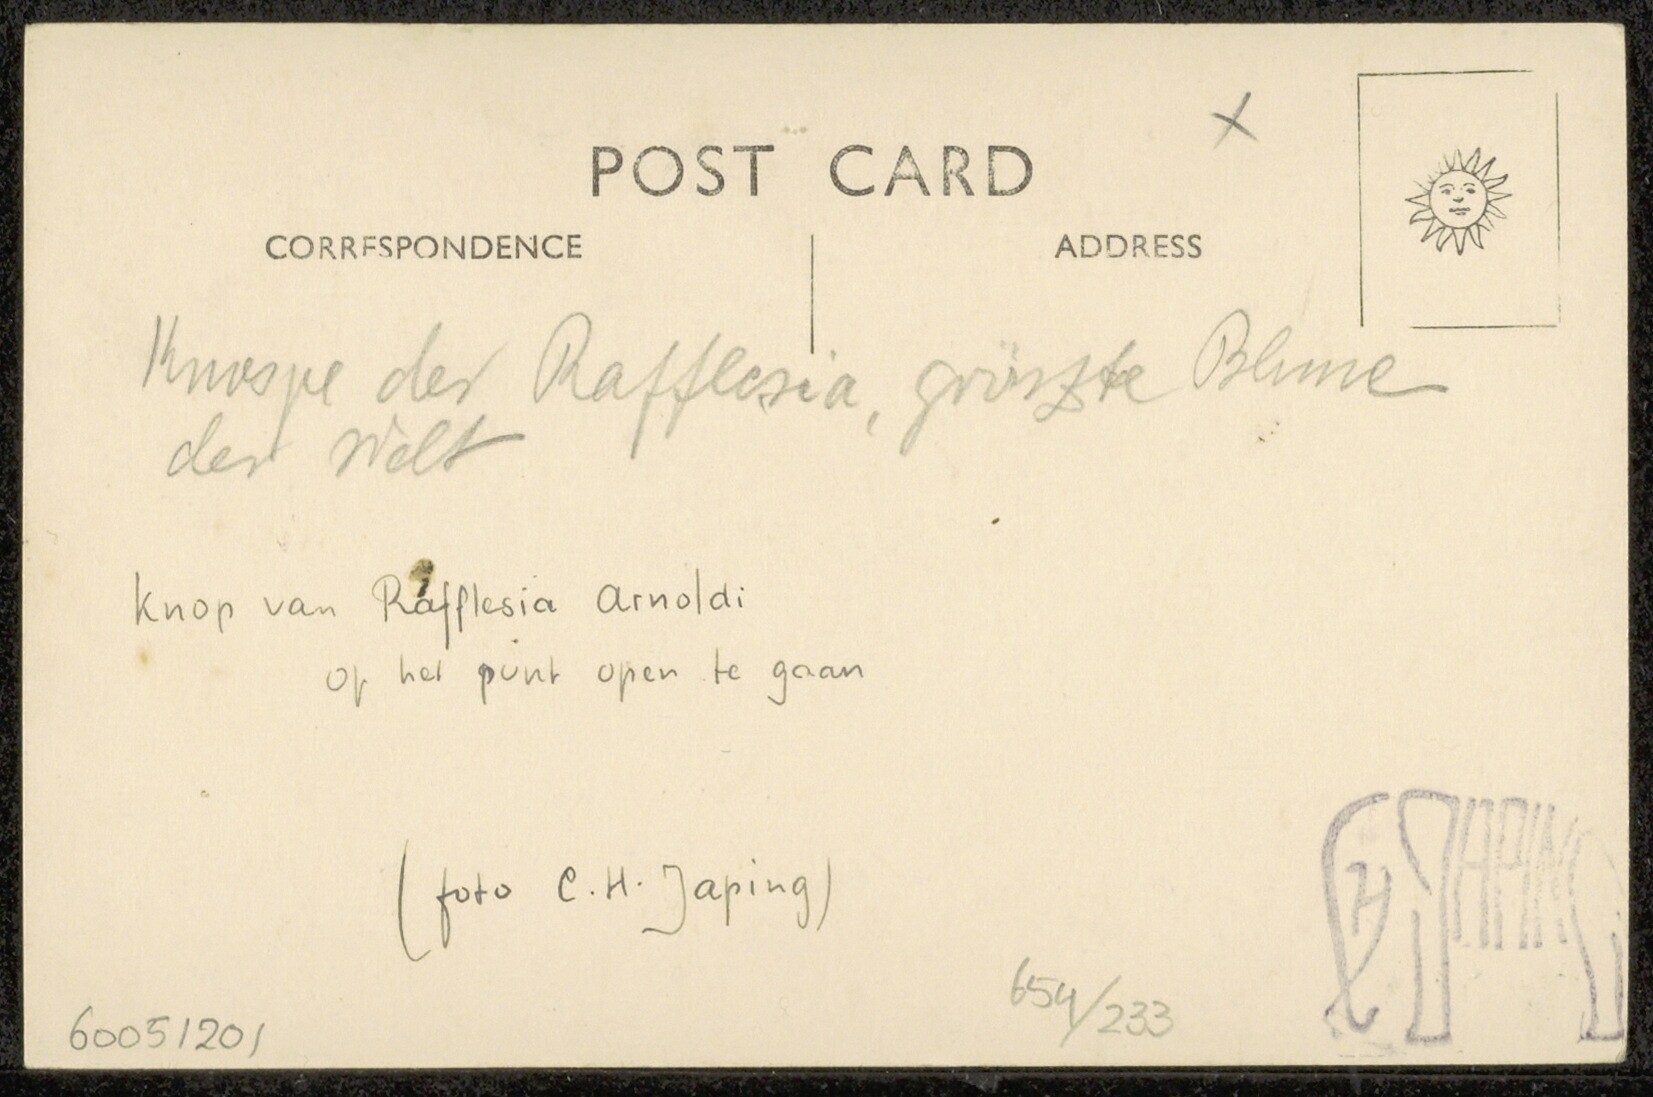 POST CARD
CORRESPONDENCE
ADDRESS
Knospe der Rafflesia, grösste Blume
der Welt
Knop van Rafflesia Arnoldi
op het punt open te gaan
(foto C.H. Japing)
654/233
60051201
CH JAPING